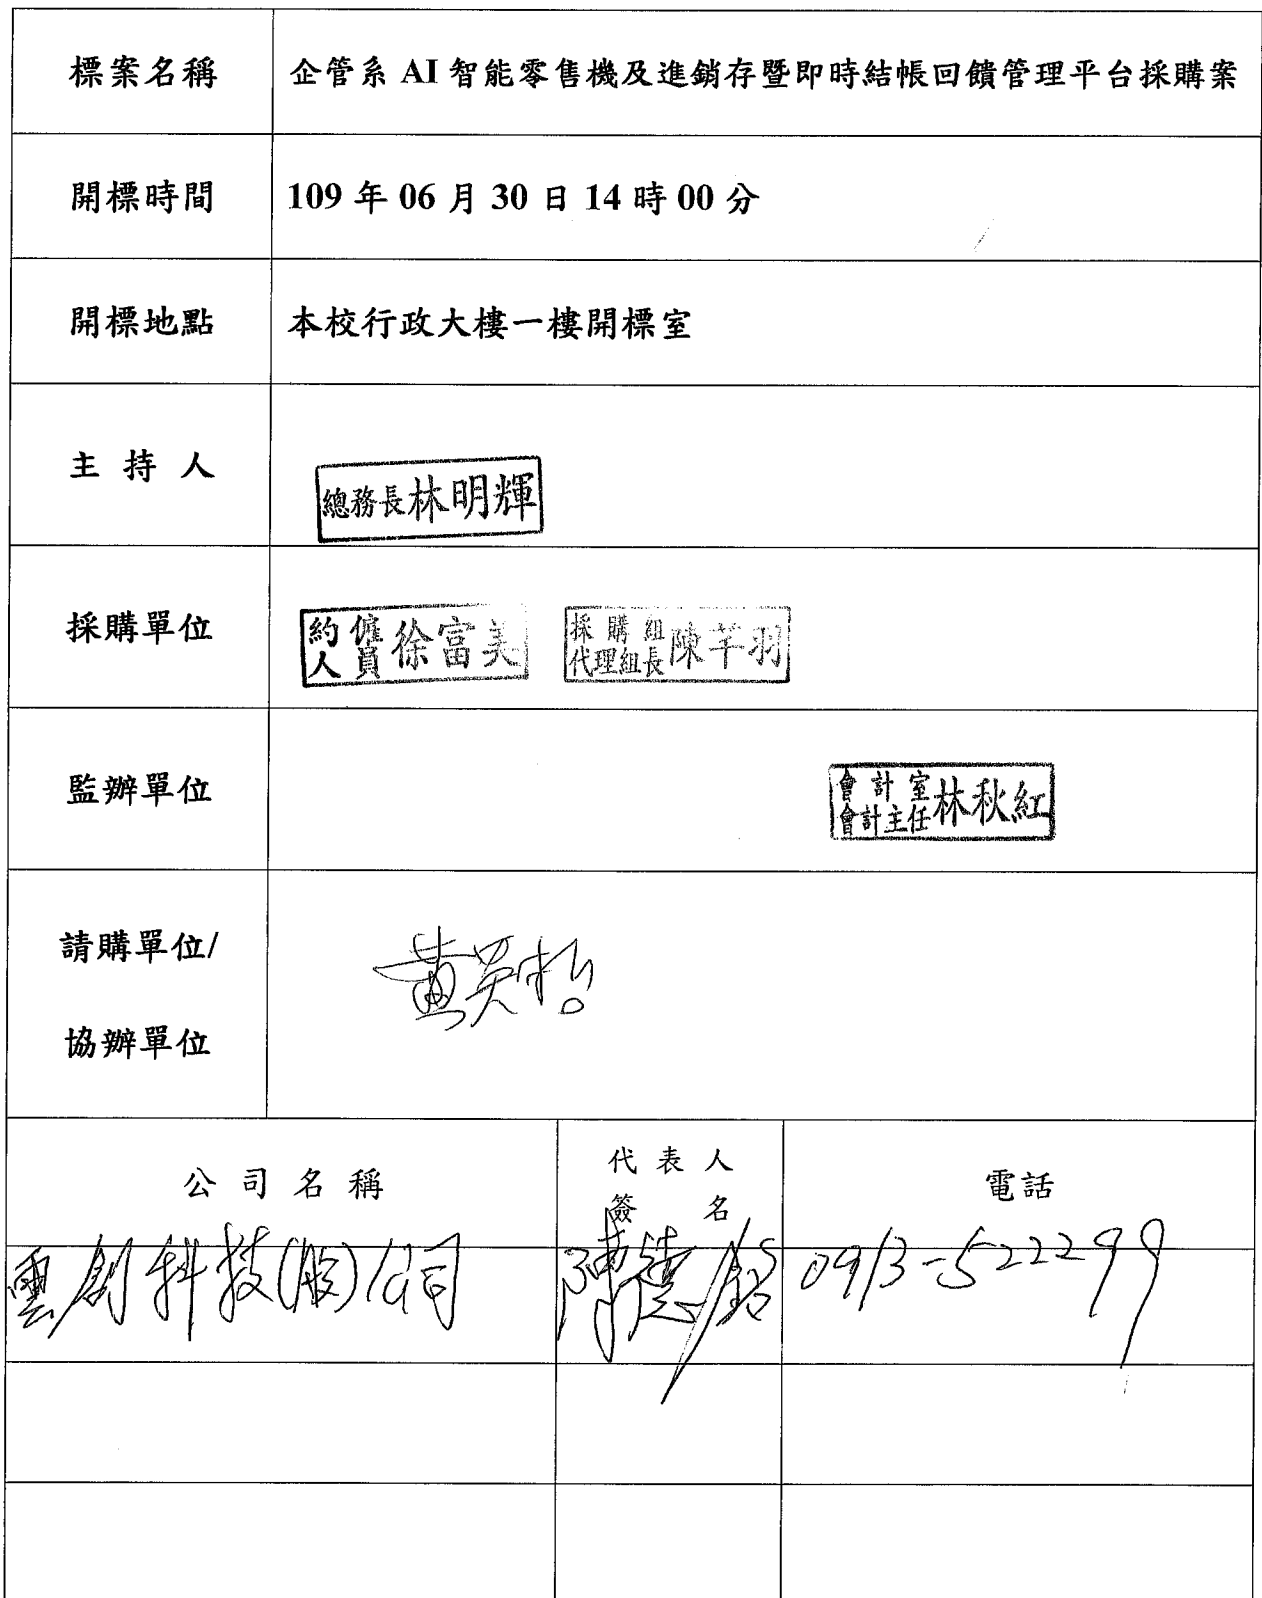 標案名稱 企管系 AI 智能零售機及進銷存暨即時結帳回饋管理平台採購案
開標時間 109 年 06 月 30 日 14 時 00 分
開標地點 本校行政大樓一樓開標室
主 持 人 總務長林明輝
採購單位 約僱人員徐富美 採購組代理組長陳芊羽
監辦單位 會計室會計主任林秋紅
請購單位/
黃英哲
協辦單位
公 司 名 稱 代 表 人 簽 名 電話
雲創科技(股)公司 陳德銘 0913-522299